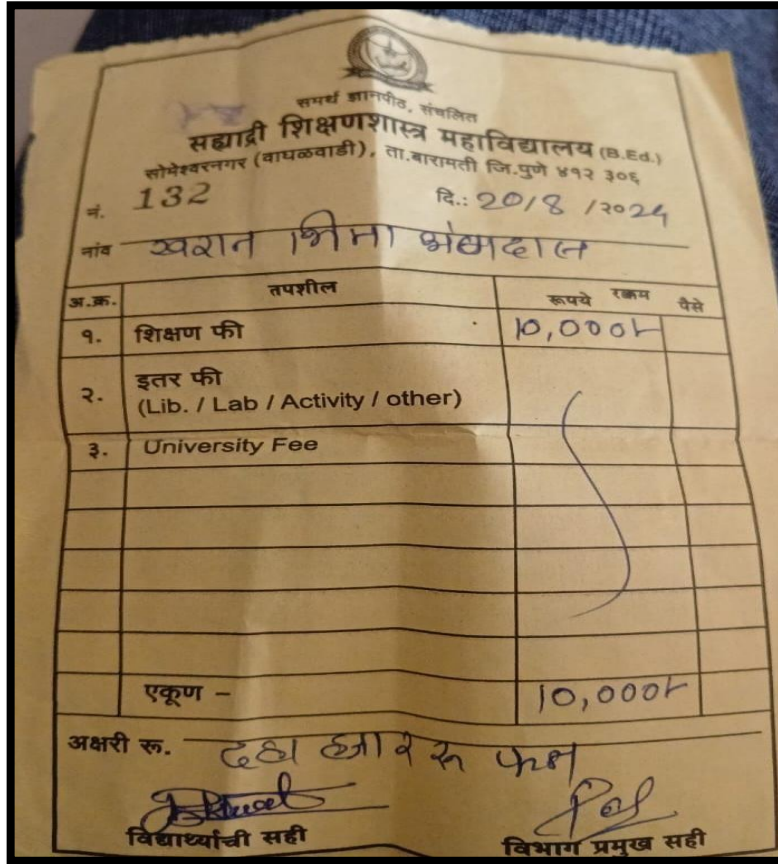 समर्थ ज्ञानपीठ, संचलित
सह्याद्री शिक्षणशास्त्र महाविद्यालय (B.Ed.)
सोमेश्वरनगर (वाघळवाडी), ता.बारामती जि.पुणे ४१२ ३०६
नं. 132 दि.: 20/8/2024
नांव खरात भिमा
अ.क्र. तपशील रूपये रक्कम पैसे
१. शिक्षण फी 10,000/-
२. इतर फी
(Lib. / Lab / Activity / other)
३. University Fee
एकूण – 10,000/-
अक्षरी रू. दहा हजार रू फक्त
विद्यार्थ्याची सही विभाग प्रमुख सही